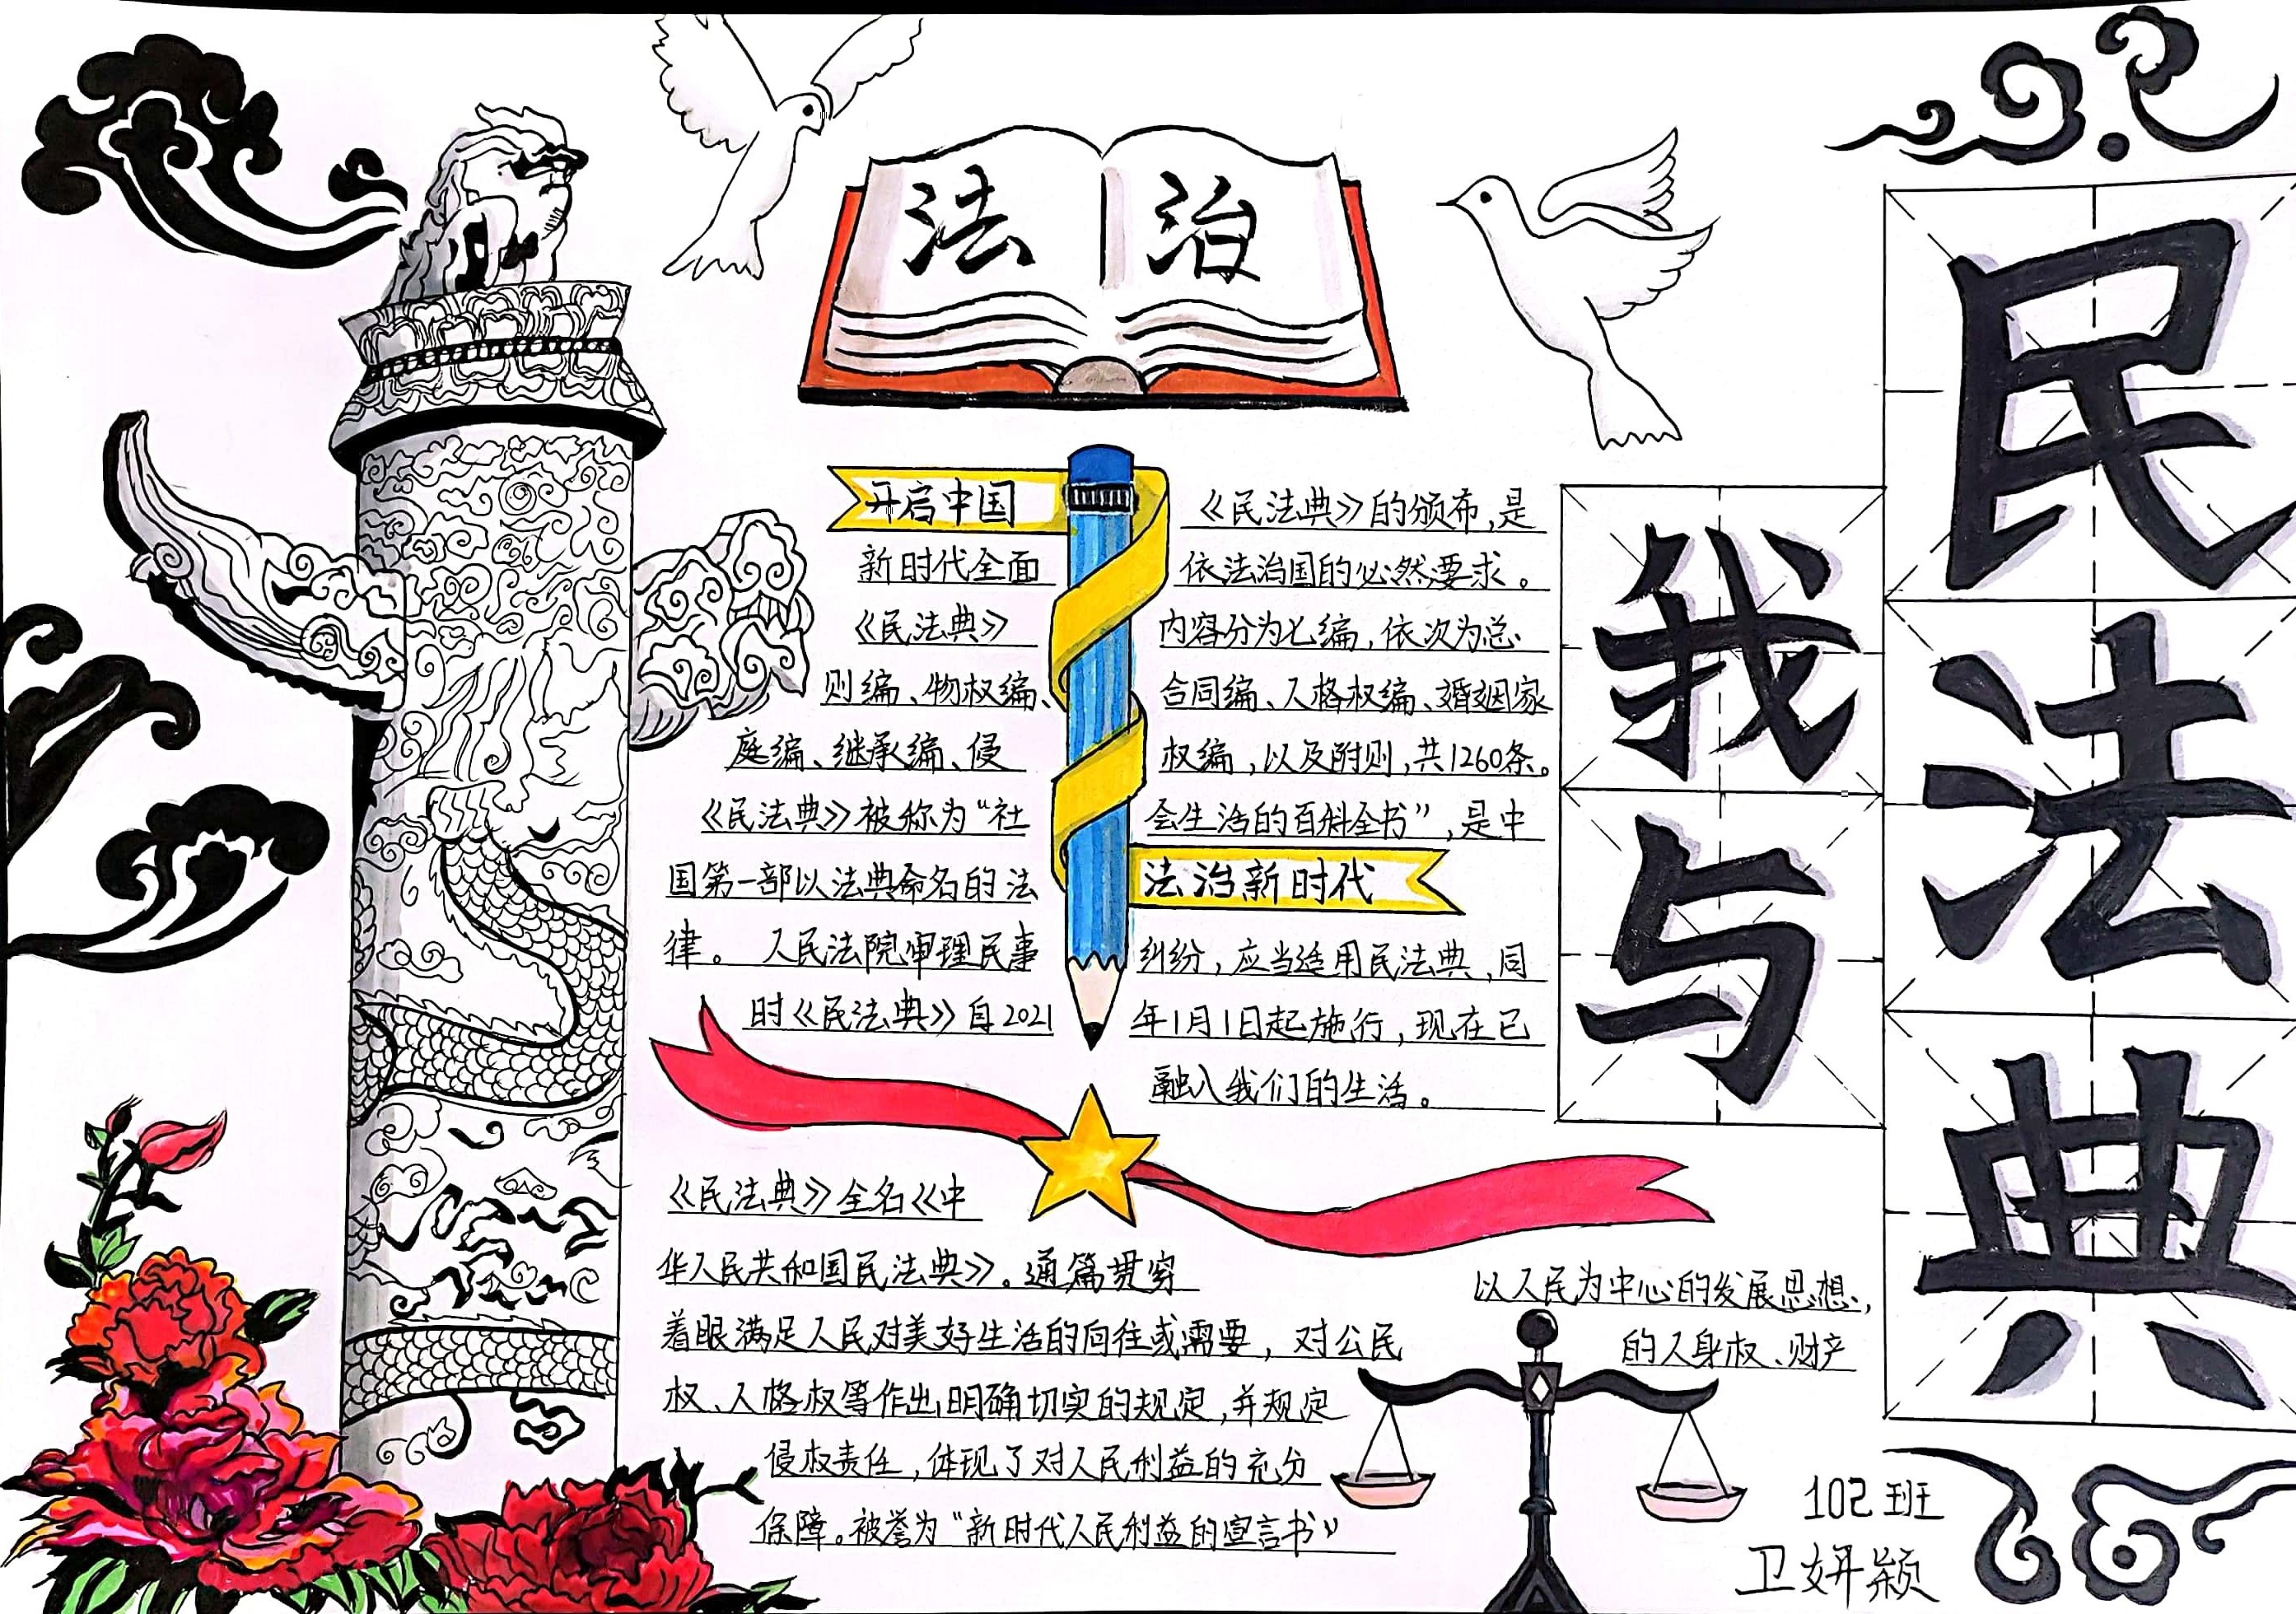 法治
我与
民法典
开启中国
新时代全面
《民法典》的颁布,是
依法治国的必然要求。
《民法典》内容分为七编,依次为总
则编、物权编、合同编、人格权编、婚姻家
庭编、继承编、侵权编,以及附则,共1260条。
《民法典》被称为“社会生活的百科全书”,是中
国第一部以法典命名的法
法治新时代
律。 人民法院审理民事纠纷,应当适用民法典,同
时《民法典》自2021年1月1日起施行,现在已
融入我们的生活。
《民法典》全名《中
华人民共和国民法典》。通篇贯穿
以人民为中心的发展思想,
着眼满足人民对美好生活的向往或需要,对公民
的人身权、财产
权、人格权等作出明确切实的规定,并规定
侵权责任,体现了对人民利益的充分
保障。被誉为“新时代人民利益的宣言书”
102班
卫妍颖